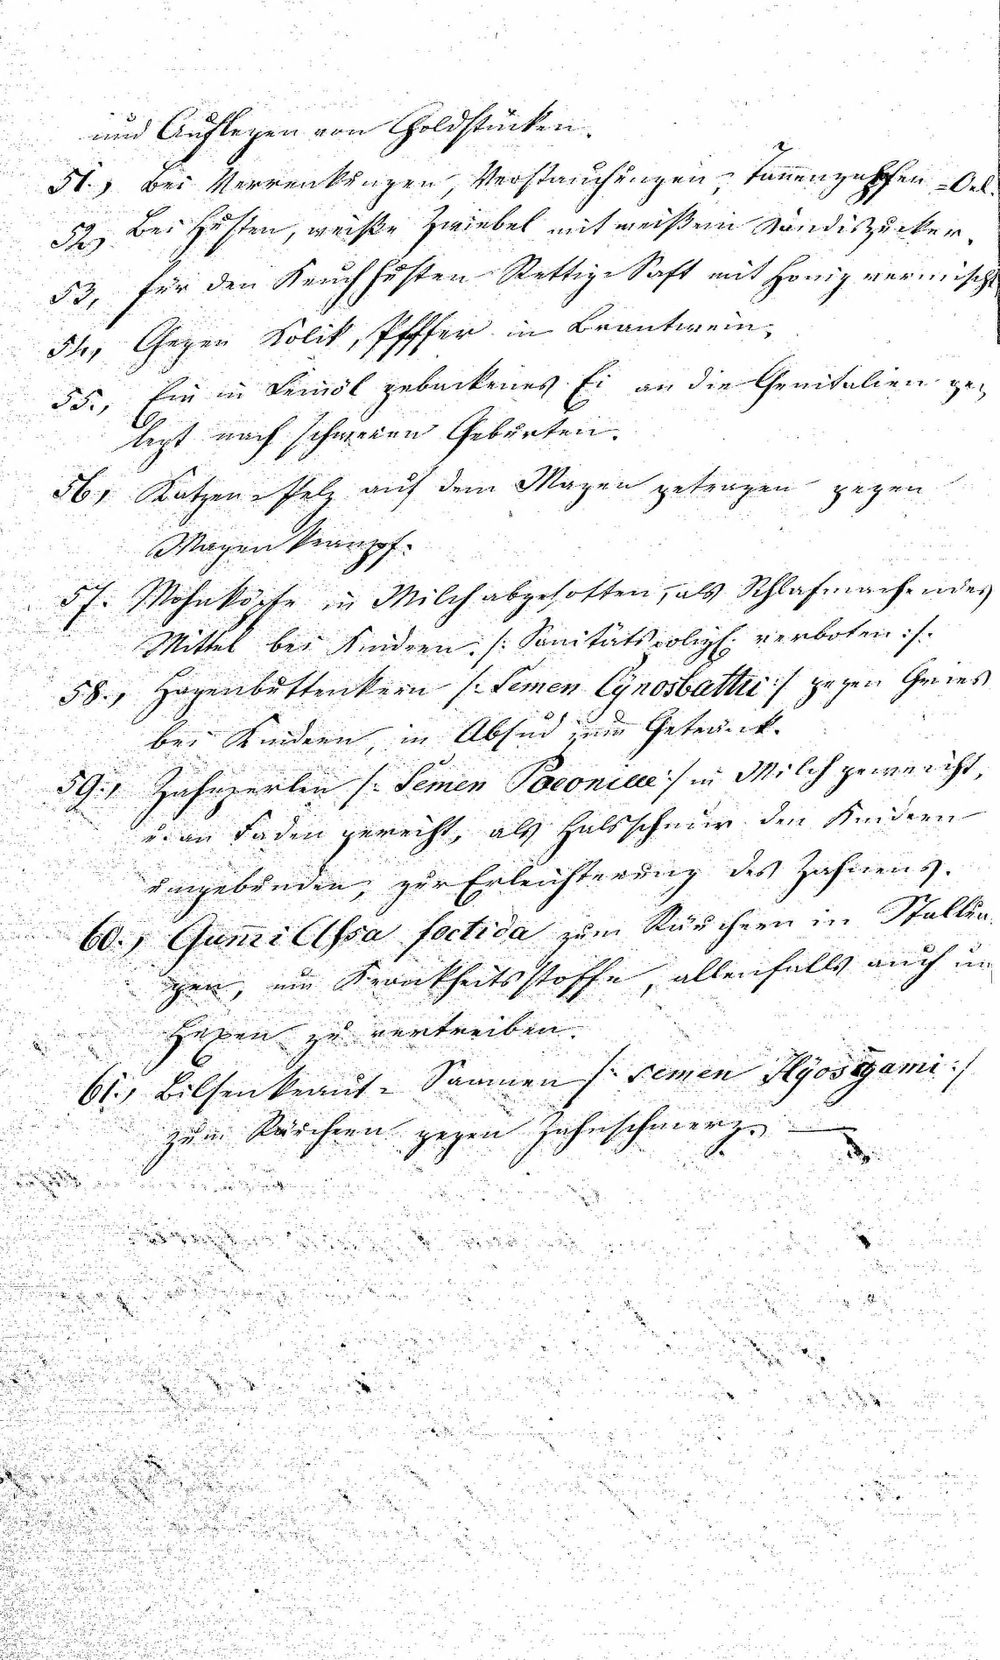 und Auflegen von Goldstücken.
51., Bei Verrenkungen, Verstauchungen, Tannenzapfen-Oel.
52, Bei Husten, weiße Zwiebel mit weißem Kandiszucker.
53, für den Keuchhusten Rettig-Saft mit Honig vermischt
54, Gegen Kolik, Pfeffer in Brantwein.
55., Ein in Leinöl gebackenes Ei an die Genitalien ge-
legt nach schweren Geburten.
56, Katzen-Pelz auf dem Magen getragen gegen
Magenkrampf.
57. Mohnköpfe in Milch abgesotten, als Schlafmachendes
Mittel bei Kindern. /: Sanitätspolizl. verboten :/.
58., Hagenbuttenkern /: Semen Cynosbatti :/ gegen Gries
bei Kindern, in Absud zum Getränk.
59., Zahnperlen /: Semen Paeoniae :/ in Milch geweicht,
u. an Faden gereiht, als Halsschnur den Kindern
umgebunden, zur Erleichterung des Zahnens.
60., Gum̅i Assa foetida zum Räuchern in Stallun-
gen, um Krankheitsstoffe, allenfalls auch um
Hexen zu vertreiben.
61., Bilsenkraut-Saamen /: semen Hyosgami :/
zum Räuchern gegen Zahnschmerz.